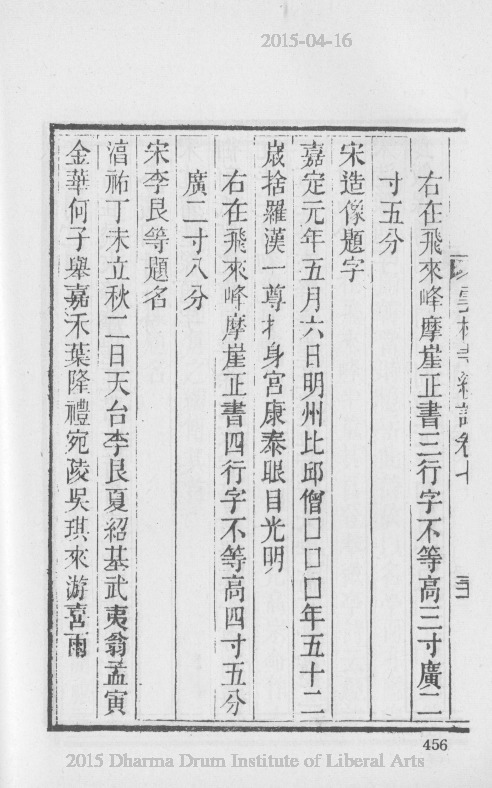 2015-04-16
右在飛來峰摩崖正書三行字不等高三寸廣二
寸五分
宋造像題字
嘉定元年五月六日明州比邱僧囗囗囗年五十二
歲捨羅漢一尊扌身宮康泰眼目光明
右在飛來峰摩崖正書四行字不等高四寸五分
廣二寸八分
宋李艮等題名
淯祐丁未立秋二日天台李艮夏紹基武夷翁孟寅
金華何子舉嘉禾葉隆禮宛陵吳琪來游喜雨
456
2015 Dharma Drum Institute of Liberal Arts